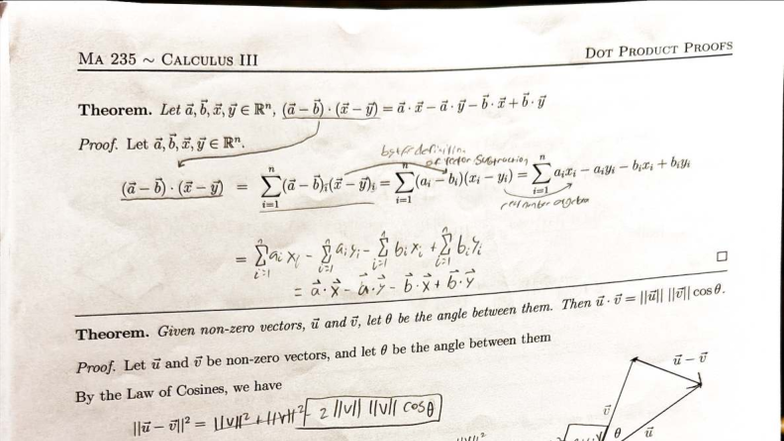 MA 235 ~ CALCULUS III
DOT PRODUCT PROOFS
Theorem. Let a⃗, b⃗, x⃗, y⃗ ∈ ℝⁿ, (a⃗ − b⃗) · (x⃗ − y⃗) = a⃗ · x⃗ − a⃗ · y⃗ − b⃗ · x⃗ + b⃗ · y⃗
Proof. Let a⃗, b⃗, x⃗, y⃗ ∈ ℝⁿ.
of vector subtraction
(a⃗ − b⃗) · (x⃗ − y⃗) = ∑ᵢ₌₁ⁿ (a⃗ − b⃗)ᵢ(x⃗ − y⃗)ᵢ = ∑ᵢ₌₁ⁿ (aᵢ − bᵢ)(xᵢ − yᵢ) = ∑ᵢ₌₁ⁿ aᵢxᵢ − aᵢyᵢ − bᵢxᵢ + bᵢyᵢ
real number algebra
= ∑ᵢ₌₁ⁿ aᵢxᵢ − ∑ᵢ₌₁ⁿ aᵢyᵢ − ∑ᵢ₌₁ⁿ bᵢxᵢ + ∑ᵢ₌₁ⁿ bᵢyᵢ
= a⃗·x⃗ − a⃗·y⃗ − b⃗·x⃗ + b⃗·y⃗
□
Theorem. Given non-zero vectors, u⃗ and v⃗, let θ be the angle between them. Then u⃗ · v⃗ = ||u⃗|| ||v⃗|| cos θ.
Proof. Let u⃗ and v⃗ be non-zero vectors, and let θ be the angle between them
By the Law of Cosines, we have
||u⃗ − v⃗||² = ||u||² + ||v||² − 2 ||u|| ||v|| cosθ
u⃗ − v⃗
v⃗
θ
u⃗